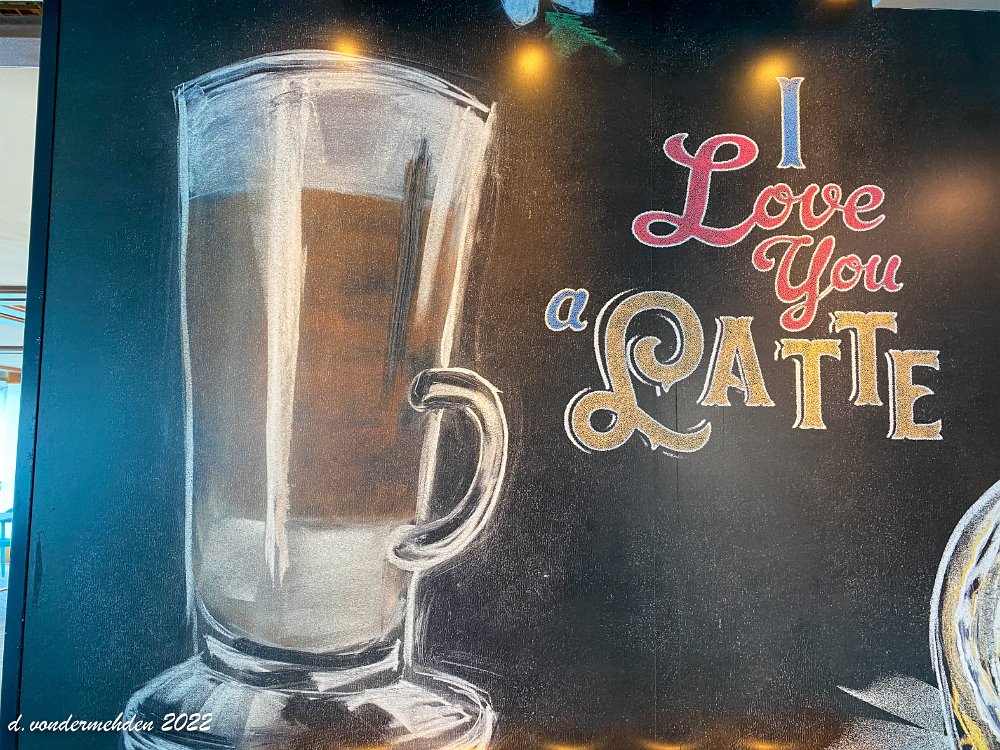 I
Love
You
a LATTE
d. vondermehden 2022